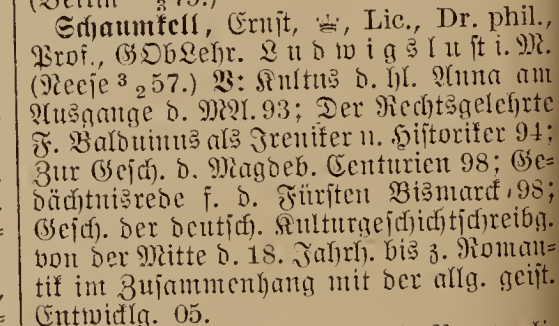 (Berlin 3
Schaumkell, Ernst, Lic., Dr. phil.,
Prof., GObLehr. Ludwigslust i. M.
(Neese 3 2 57.) V: Kultus d. hl. Anna am
Ausgange d. MAl. 93; Der Rechtsgelehrte
F. Balduinus als Ireniker u. Historiker 94;
Zur Gesch. d. Magdeb. Centurien 98; Ge=
dächtnisrede f. d. Fürsten Bismarck 98;
Gesch. der deutsch. Kulturgeschichtschreibg.
von der Mitte d. 18. Jahrh. bis z. Roman=
tik im Zusammenhang mit der allg. geist.
Entwicklg. 05.